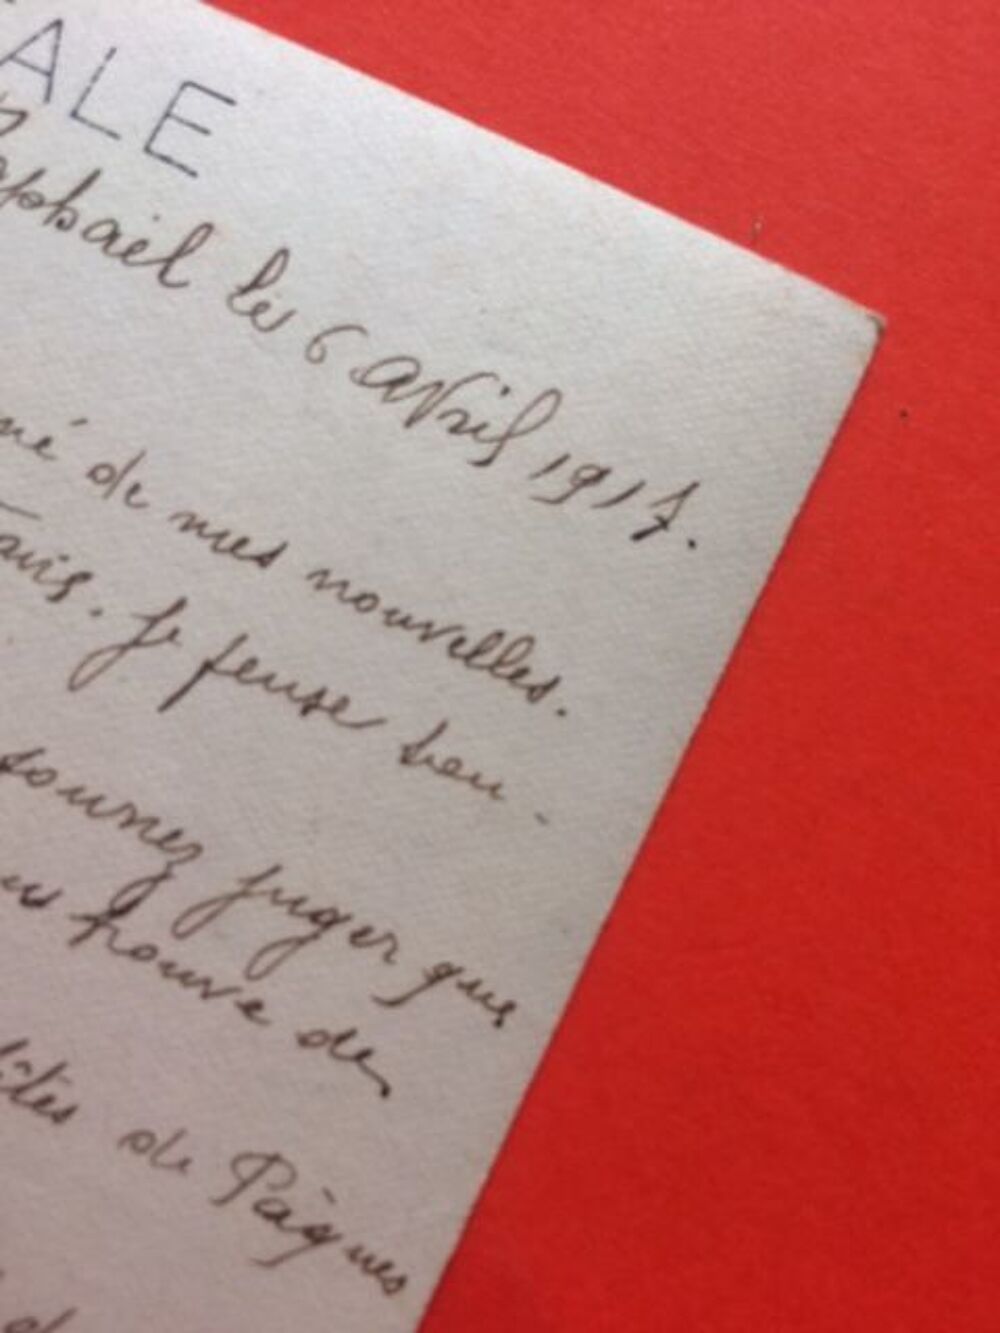 ALE
aphaël le 6 Avril 1917.
né de mes nouvelles.
Je pense bien
juger que
trouve de
de Pâques